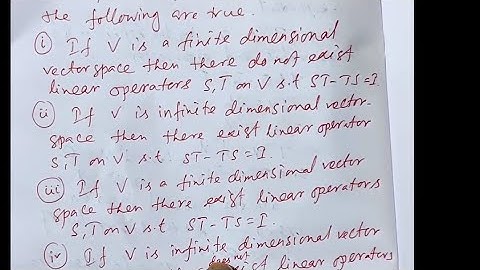 the following are true.
(i) If V is a finite dimensional
vector space then there do not exist
linear operators S,T on V s.t ST-TS=I.
(ii) If V is infinite dimensional vector-
space then there exist linear operator
S,T on V s.t ST-TS=I.
(iii) If V is a finite dimensional vector
space then there exist linear operators
S,T on V s.t ST-TS=I.
(iv) If V is infinite dimensional vector
does not
exist linear operators